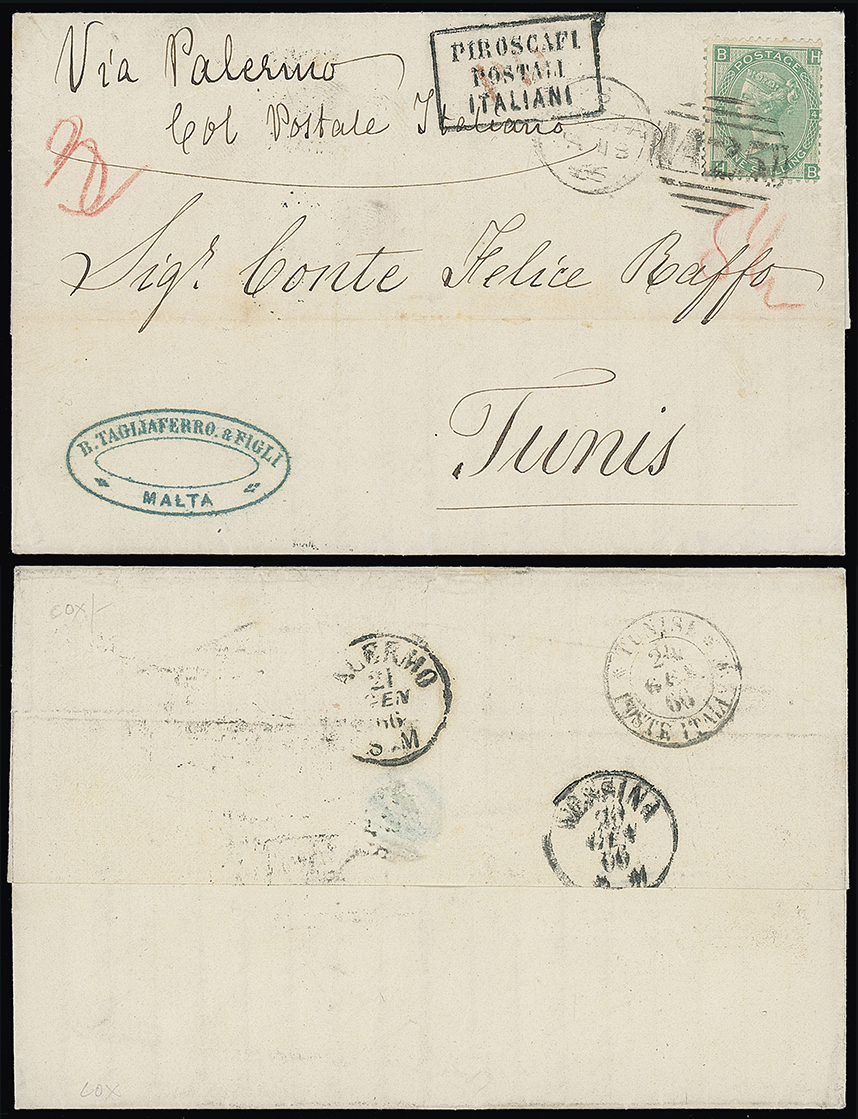 Via Palermo
Col Postale Italiano
PIROSCAFI
POSTALI
ITALIANI
B H
POSTAGE
4
H B
A25
Sigr. Conte Felice Raffo
Tunis
B. TAGLIAFERRO. & FIGLI
MALTA
COX
ALERMO
21
GEN
66
S M
TUNISI
24
GEN
66
POSTE ITAL
MESSINA
20
GEN
66
COX